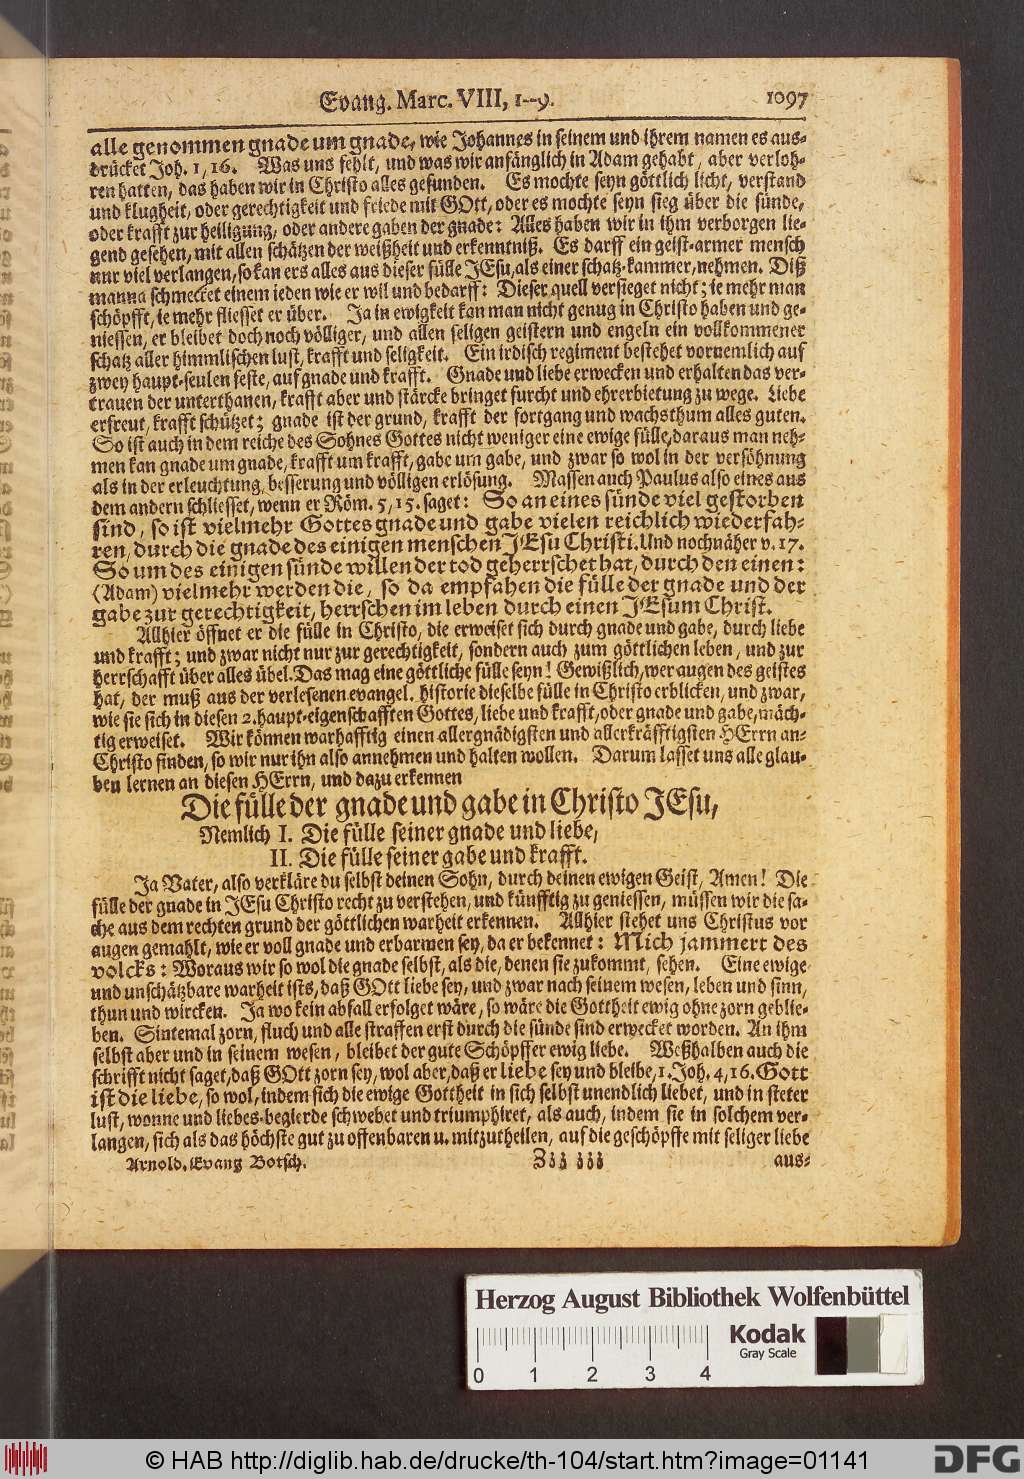 Evang. Marc. VIII, 1--9. 1097
alle genommen gnade um gnade, wie Johannes in seinem und ihrem namen es aus-
drücket Joh. 1, 16. Was uns fehlt, und was wir anfänglich in Adam gehabt, aber verloh-
ren hatten, das haben wir in Christo alles gefunden. Es mochte seyn göttlich licht, verstand
und klugheit, oder gerechtigkeit und friede mit GOtt, oder es mochte seyn sieg über die sünde,
oder krafft zur heiligung, oder andere gaben der gnade: Alles haben wir in ihm verborgen lie-
gend gesehen, mit allen schätzen der weißheit und erkenntniß. Es darff ein geist-armer mensch
nur viel verlangen, so kan ers alles aus dieser fülle JEsu, als einer schatz-kammer, nehmen. Diß
manna schmecket einem ieden wie er wil und bedarff: Dieser quell versieget nicht; ie mehr man
schöpfft, ie mehr fliesset er über. Ja in ewigkeit kan man nicht genug in Christo haben und ge-
niessen, er bleibet doch noch völliger, und allen seligen geistern und engeln ein vollkommener
schatz aller himmlischen lust, krafft und seligkeit. Ein irdisch regiment bestehet vornemlich auf
zwey haupt-seulen feste, auf gnade und krafft. Gnade und liebe erwecken und erhalten das ver-
trauen der unterthanen, krafft aber und stärcke bringet furcht und ehrerbietung zu wege. Liebe
erfreut, krafft schützet; gnade ist der grund, krafft der fortgang und wachsthum alles guten.
So ist auch in dem reiche des Sohnes Gottes nicht weniger eine ewige fülle, daraus man neh-
men kan gnade um gnade, krafft um krafft, gabe um gabe, und zwar so wol in der versöhnung
als in der erleuchtung, besserung und völligen erlösung. Massen auch Paulus also eines aus
dem andern schliesset, wenn er Röm. 5, 15. saget: So an eines sünde viel gestorben
sind, so ist vielmehr Gottes gnade und gabe vielen reichlich wiederfah-
ren, durch die gnade des einigen menschen JEsu Christi. Und noch näher v. 17.
So um des einigen sünde willen der tod geherrschet hat, durch den einen:
(Adam) vielmehr werden die, so da empfahen die fülle der gnade und der
gabe zur gerechtigkeit, herrschen im leben durch einen JEsum Christ.
Allhier öffnet er die fülle in Christo, die erweiset sich durch gnade und gabe, durch liebe
und krafft; und zwar nicht nur zur gerechtigkeit, sondern auch zum göttlichen leben, und zur
herrschafft über alles übel. Das mag eine göttliche fülle seyn! Gewißlich, wer augen des geistes
hat, der muß aus der verlesenen evangel. historie dieselbe fülle in Christo erblicken, und zwar,
wie sie sich in diesen 2. haupt-eigenschafften Gottes, liebe und krafft, oder gnade und gabe, mäch-
tig erweiset. Wir können warhafftig einen allergnädigsten und allerkräfftigsten HErrn an-
Christo finden, so wir nur ihn also annehmen und halten wollen. Darum lasset uns alle glau-
ben lernen an diesen HErrn, und dazu erkennen
Die fülle der gnade und gabe in Christo JEsu,
Nemlich I. Die fülle seiner gnade und liebe,
II. Die fülle seiner gabe und krafft.
Ja Vater, also verkläre du selbst deinen Sohn, durch deinen ewigen Geist, Amen! Die
fülle der gnade in JEsu Christo recht zu verstehen, und künfftig zu geniessen, müssen wir die sa-
che aus dem rechten grund der göttlichen warheit erkennen. Allhier stehet uns Christus vor
augen gemahlt, wie er voll gnade und erbarmen sey, da er bekennet: Mich jammert des
volcks: Woraus wir so wol die gnade selbst, als die, denen sie zukommt, sehen. Eine ewige
und unschätzbare warheit ists, daß GOtt liebe sey, und zwar nach seinem wesen, leben und sinn,
thun und wircken. Ja wo kein abfall erfolget wäre, so wäre die Gottheit ewig ohne zorn geblie-
ben. Sintemal zorn, fluch und alle straffen erst durch die sünde sind erwecket worden. An ihm
selbst aber und in seinem wesen, bleibet der gute Schöpffer ewig liebe. Weßhalben auch die
schrifft nicht saget, daß GOtt zorn sey, wol aber, daß er liebe sey und bleibe, 1. Joh. 4, 16. Gott
ist die liebe, so wol, indem sich die ewige Gottheit in sich selbst unendlich liebet, und in steter
lust, wonne und liebes-begierde schwebet und triumphiret, als auch, indem sie in solchem ver-
langen, sich als das höchste gut zu offenbaren u. mitzutheilen, auf die geschöpffe mit seliger liebe
Arnold. Evang Botsch. Zzz zzz aus-
Herzog August Bibliothek Wolfenbüttel
Kodak
Gray Scale
0 1 2 3 4
© HAB http://diglib.hab.de/drucke/th-104/start.htm?image=01141
DFG